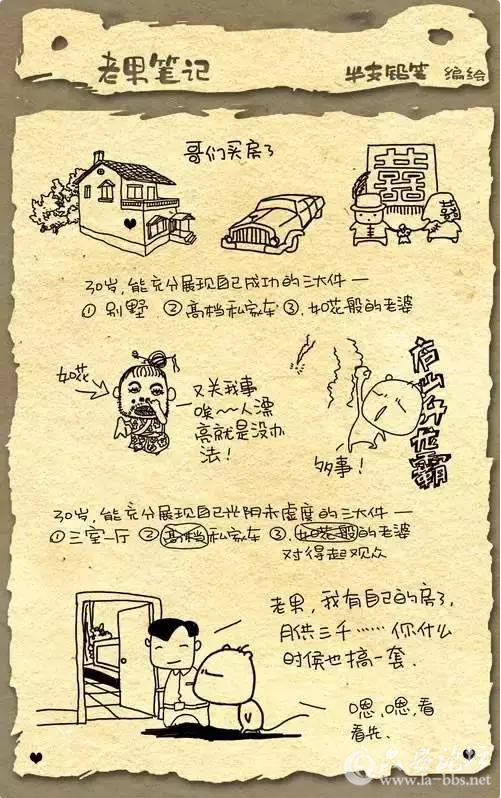 老果笔记
半支铅笔 编绘
哥们买房了
30岁,能充分展现自己成功的三大件—
① 别墅 ② 高档私家车 ③.如花般的老婆
囍
如花
又关我事
唉~~人漂
亮就是没办
法!
庐山升龙霸
多事!
30岁,能充分展现自己光阴未虚度的三大件—
① 三室一厅 ② 高档私家车 ③.如花般的老婆
对得起观众
老果,我有自己的房了,
月供三千……你什么
时侯也搞一套.
嗯,嗯,看
看先.
www.la-bbs.net